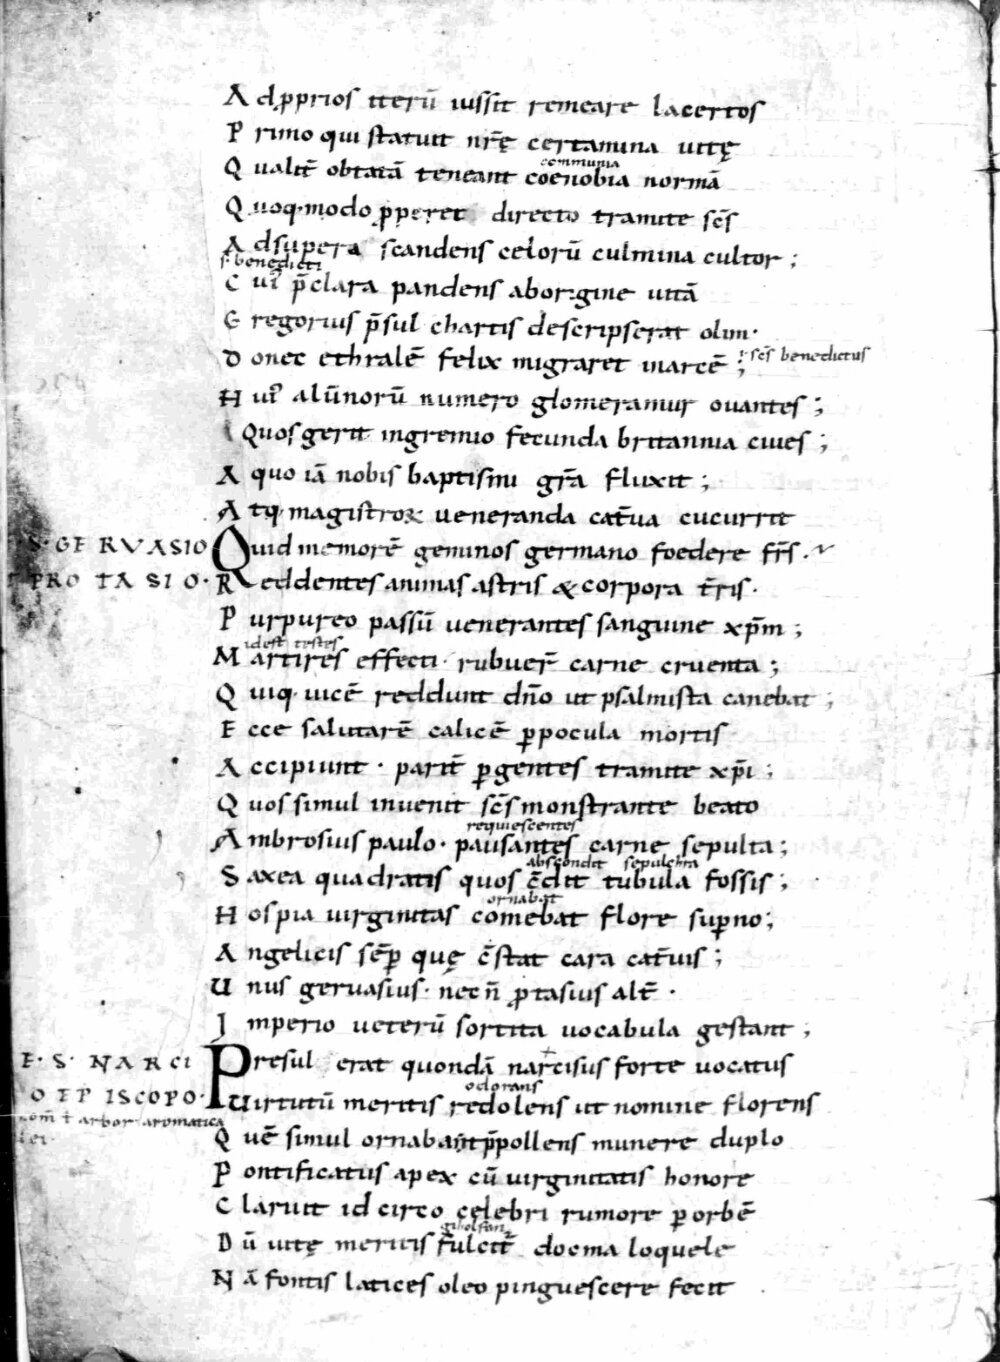 Adꝓprios iterū iussit remeare lacertos
Primo qui statuit nr̄ę certamina uitę
communia
Qualit̄ obtatā teneant coenobia normā
Quoq·modo ꝓperet directo tramite sc̄s
Adsupera scandens celorū culmina cultor;
s· benedicti
Cui᷒ p̄clara pandens aborigine uitā
Gregorius p̄sul chartis descripserat olim·
Donec ethralē felix migraret inarcē; sc̄s benedictus
Hui᷒ alūnorū numero glomeramur ouantes;
Quos gerit ingremio fecunda britannia ciues;
Aquo iā nobis baptismi gr̄a fluxit;
Atq· magistroꝝ ueneranda cat̄ua cucurrit
S· GERVASIO Quid memorē geminos germano foedere fr̄s·
PROTASIO· Reddentes animas astris & corpora t̄ris·
Purpureo passū uenerantes sanguine xp̄m;
idest testes
Martires effecti· rubuer̄ carne cruenta;
Quiq· uicē reddunt dn̄o ut psalmista canebat;
Ecce salutarē calicē ꝑpocula mortis
Accipiunt· parit̄ ꝑgentes tramite xp̄i;
Quos simul inuenit sc̄s monstrante beato
requiescentes
Ambrosius paulo· pausantes carne sepulta;
abscondit sepulchra
Saxea quadratis quos c̄dit tubula fossis;
ornabat
Hos pia uirginitas comebat flore suꝑno;
Angelicis sēꝑ quę c̄stat cara cat̄uis;
Unus geruasius· necn̄ ꝓtasius alt̄·
Imperio ueterū sortita uocabula gestant;
E· S· NARCI Presul erat quondā narcisus forte uocatus
odorans
O EPISCOPO· Uirtutū meritis redolens ut nomine florens
nom̄ ē arbor aromatica
Quē simul ornabant p̄pollens munere duplo
Pontificatus apex cū uirginitatis honore
Claruit id circo celebri rumore ꝑorbē
Dū uitę meritis fulcit᷒ docma loquele
Nā fontis latices oleo pinguescere fecit